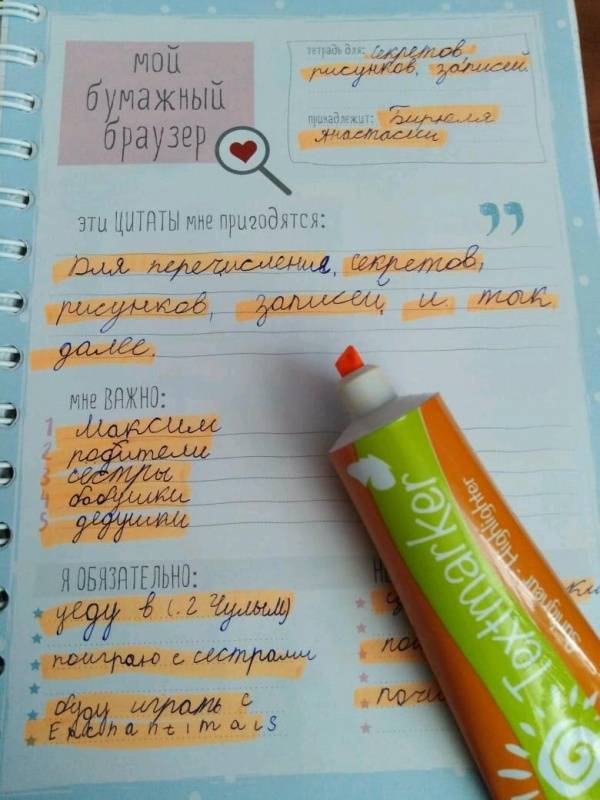 мой
бумажный
браузер
тетрадь для: секретов
рисунков, записей.
принадлежит: Бирюля
Анастасии
эти ЦИТАТЫ мне пригодятся:
Для перечисления, секретов,
рисунков, записей и так
далее.
мне ВАЖНО:
1 Максим
2 родители
3 сестры
4 бабушки
5 дедушки
Я ОБЯЗАТЕЛЬНО:
уеду в (.г Чулым)
поиграю с сестрами
буду играть с
Enchantimals
Textmarker
Surligneur · Highlighter